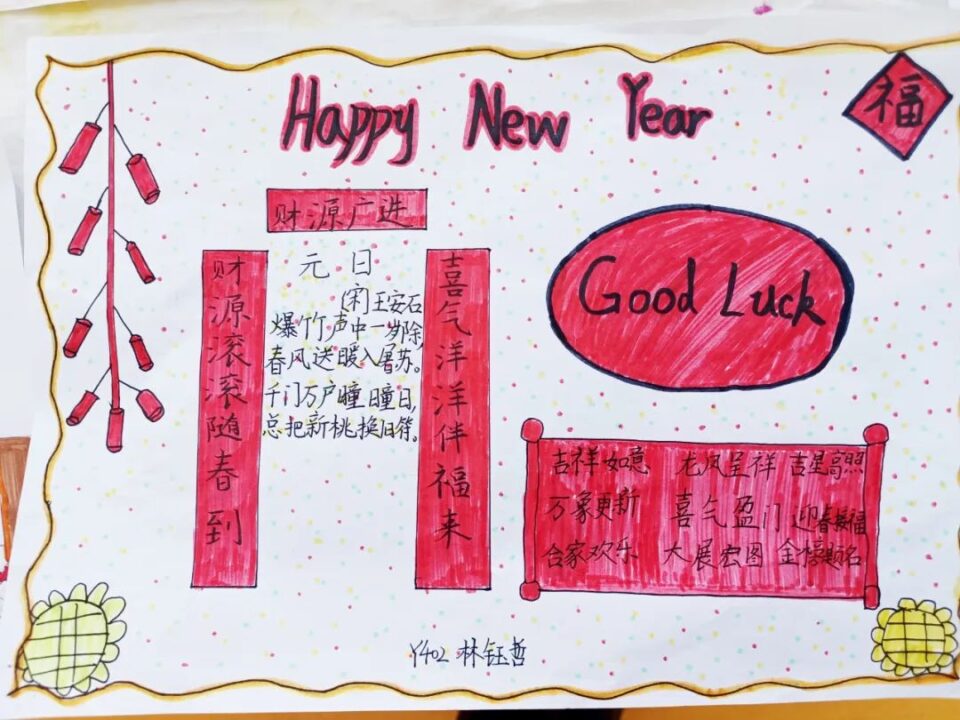 Happy New Year
福
财源广进
财源滚滚随春到
元日
(宋)王安石
爆竹声中一岁除,
春风送暖入屠苏。
千门万户瞳瞳日,
总把新桃换旧符。
喜气洋洋伴福来
Good Luck
吉祥如意 龙凤呈祥 吉星高照
万象更新 喜气盈门 迎春接福
合家欢乐 大展宏图 金榜题名
Y402 林钰哲